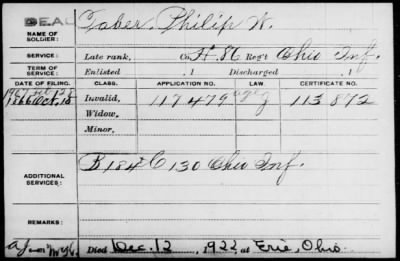 DEAD
NAME OF SOLDIER: Taber, Philip W.
SERVICE: Late rank, Co. H. 86 Reg't Ohio Inf.
TERM OF SERVICE: Enlisted , 1 Discharged , 1
DATE OF FILING. CLASS. APPLICATION NO. LAW. CERTIFICATE NO.
1907 Feb 28
1866 Oct. 18 Invalid, 117479 113 872
Widow,
Minor,
ADDITIONAL SERVICES: B 184 & C 130 Ohio Inf.
REMARKS:
Died Dec. 12 , 1922, at Erie, Ohio.